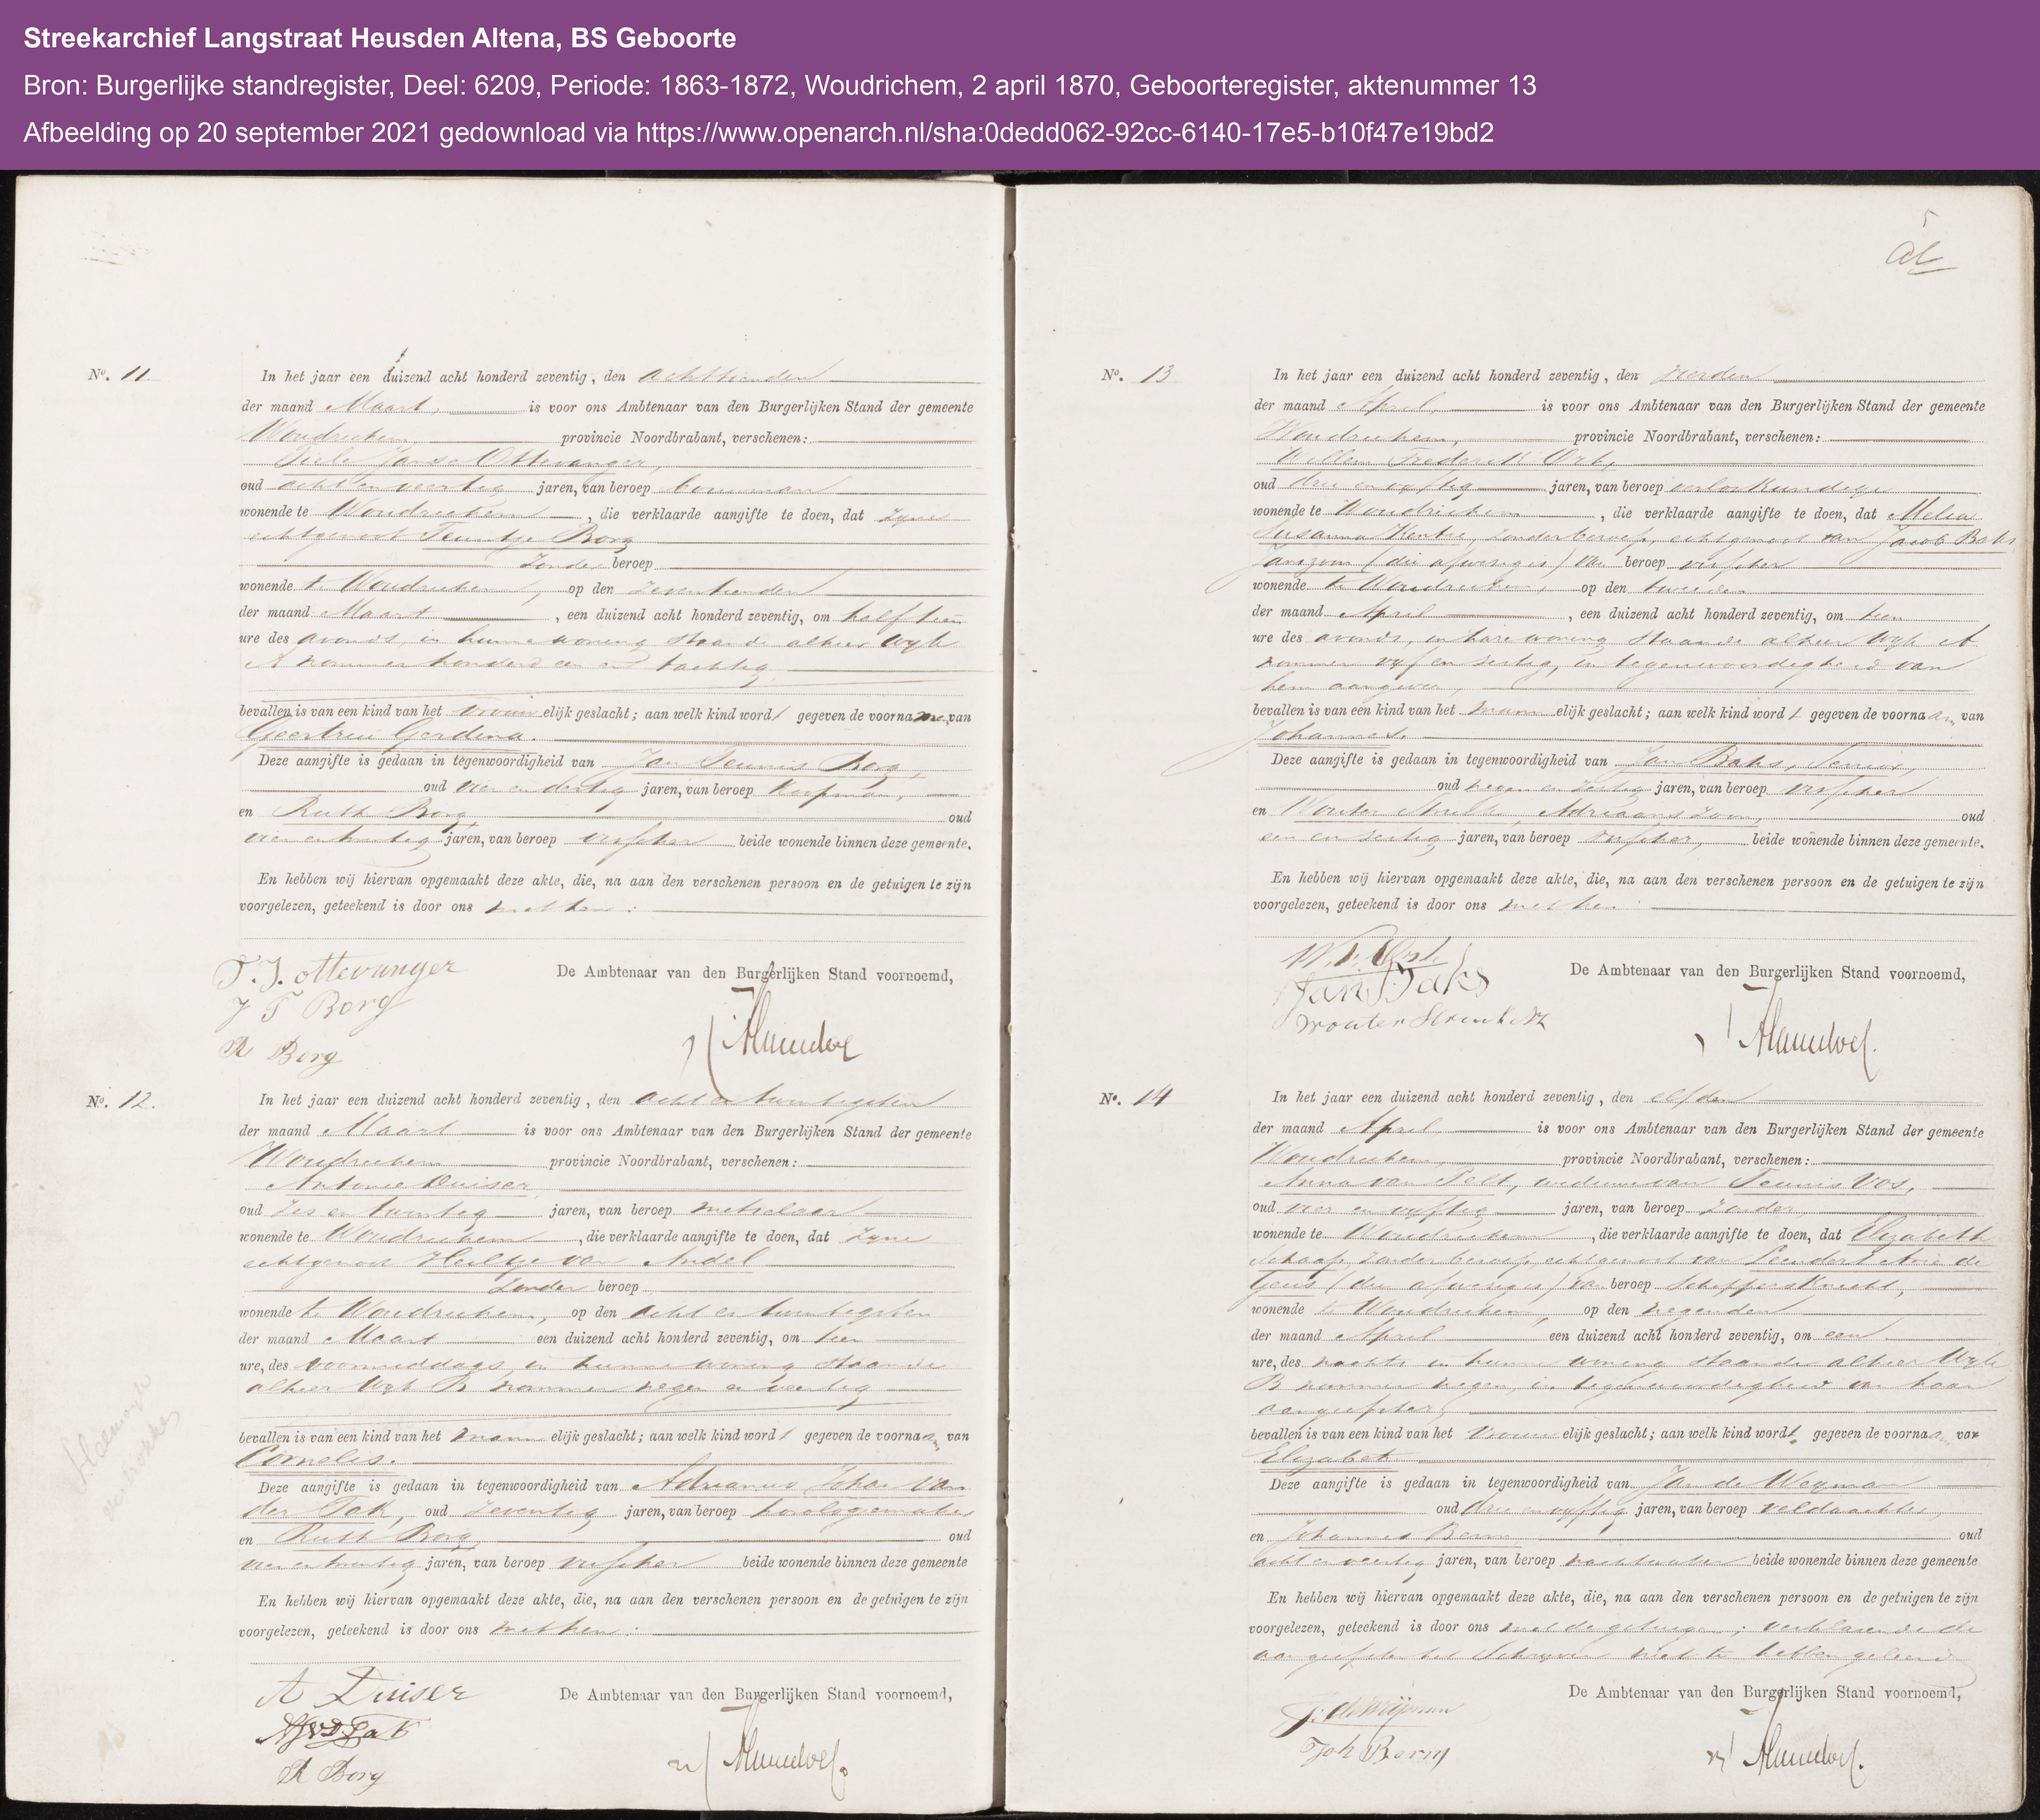 Streekarchief Langstraat Heusden Altena, BS Geboorte
Bron: Burgerlijke standregister, Deel: 6209, Periode: 1863-1872, Woudrichem, 2 april 1870, Geboorteregister, aktenummer 13
Afbeelding op 20 september 2021 gedownload via https://www.openarch.nl/sha:0dedd062-92cc-6140-17e5-b10f47e19bd2
No. 11.
In het jaar een duizend acht honderd zeventig, den achttienden
der maand Maart, is voor ons Ambtenaar van den Burgerlijken Stand der gemeente
Woudrichem, provincie Noordbrabant, verschenen:
Ottevanger,
oud acht en veertig jaren, van beroep bouwman
wonende te Woudrichem, die verklaarde aangifte te doen, dat zyne
echtgenoot Teuntje Borg
Zonder beroep
wonende te Woudrichem, op den zeventienden
der maand Maart, een duizend acht honderd zeventig, om half tien
ure des avonds, in hunne woning staande alhier Wyk
A nommer honderd een en tachtig
bevallen is van een kind van het vrouwelijk geslacht; aan welk kind wordt gegeven de voorname, van
Geertrui Gerdina.
Deze aangifte is gedaan in tegenwoordigheid van Jan Teunis Borg,
oud vier en dertig jaren, van beroep koopman,
en Ruth Borg, oud
vier en twintig jaren, van beroep visscher beide wonende binnen deze gemeente.
En hebben wij hiervan opgemaakt deze akte, die, na aan den verschenen persoon en de getuigen te zijn
voorgelezen, geteekend is door ons met hen:
De Ambtenaar van den Burgerlijken Stand voornoemd,
T. J. ottevanger
J T Borg
R Borg
No. 12.
In het jaar een duizend acht honderd zeventig, den acht en twintigsten
der maand Maart is voor ons Ambtenaar van den Burgerlijken Stand der gemeente
Woudrichem provincie Noordbrabant, verschenen:
Antonie Duiser,
oud zes en twintig jaren, van beroep metselaar
wonende te Woudrichem, die verklaarde aangifte te doen, dat zyne
echtgenoot Heiltje van Andel
Zonder beroep
wonende te Woudrichem, op den acht en twintigsten
der maand Maart een duizend acht honderd zeventig, om tien
ure, des voormiddags, in hunne woning staande
alhier Wyk B nommer negen en veertig
bevallen is van een kind van het mannelijk geslacht; aan welk kind wordt gegeven de voornaam, van
Cornelis.
Deze aangifte is gedaan in tegenwoordigheid van Adrianus Johan van
der Tak, oud zeventig jaren, van beroep horologemaker
en Ruth Borg, oud
vier en twintig jaren, van beroep visscher beide wonende binnen deze gemeente
En hebben wij hiervan opgemaakt deze akte, die, na aan den verschenen persoon en de getuigen te zijn
voorgelezen, geteekend is door ons met hen:
De Ambtenaar van den Burgerlijken Stand voornoemd,
A Duiser
AJVDTak
R Borg
No. 13
In het jaar een duizend acht honderd zeventig, den vierden
der maand April, is voor ons Ambtenaar van den Burgerlijken Stand der gemeente
Woudrichem, provincie Noordbrabant, verschenen:
Willem Frederik
oud drie en vyftig jaren, van beroep verloskundige
wonende te Woudrichem, die verklaarde aangifte te doen, dat
Susanna zonder beroep, echtgenoot van Jacob Baks
Janszoon (die afwezig is) van beroep visscher
wonende te Woudrichem, op den tweeden
der maand April, een duizend acht honderd zeventig, om tien
ure des avonds, in hare woning staande alhier Wyk A
nommer vyf en zestig, in tegenwoordigheid van
hem aangever,
bevallen is van een kind van het mannelijk geslacht; aan welk kind wordt gegeven de voornaam, van
Johannes.
Deze aangifte is gedaan in tegenwoordigheid van Jan Baks, Senior,
oud zeven en zestig jaren, van beroep visscher
en Wouter Adriaanszoon, oud
een en zestig jaren, van beroep visscher, beide wonende binnen deze gemeente.
En hebben wij hiervan opgemaakt deze akte, die, na aan den verschenen persoon en de getuigen te zijn
voorgelezen, geteekend is door ons met hen:
De Ambtenaar van den Burgerlijken Stand voornoemd,
Jan Baks
wouter
No. 14
In het jaar een duizend acht honderd zeventig, den elfden
der maand April is voor ons Ambtenaar van den Burgerlijken Stand der gemeente
Woudrichem, provincie Noordbrabant, verschenen:
Anna van Pelt, weduwe van Teunis Vos,
oud vier en vyftig jaren, van beroep zonder,
wonende te Woudrichem, die verklaarde aangifte te doen, dat Elizabeth
Schaap, zonder beroep, echtgenoot van Leendert Arie de
Geus (die afwezig is) van beroep Schippersknecht,
wonende te Woudrichem, op den negenden
der maand April een duizend acht honderd zeventig, om een
ure, des nachts in hunne woning staande alhier Wyk
B nommer negen, in tegenwoordigheid van haar
aangeefster,
bevallen is van een kind van het vrouwelijk geslacht; aan welk kind wordt gegeven de voornaam, van
Elizabet
Deze aangifte is gedaan in tegenwoordigheid van Jan de Weyman
oud drie en vyftig jaren, van beroep veldwachter,
en Johannes oud
acht en veertig jaren, van beroep nachtwaker beide wonende binnen deze gemeente
En hebben wij hiervan opgemaakt deze akte, die, na aan den verschenen persoon en de getuigen te zijn
voorgelezen, geteekend is door ons met de getuigen; verklarende de
aangeefster het Schryven niet te hebben geleerd
De Ambtenaar van den Burgerlijken Stand voornoemd,